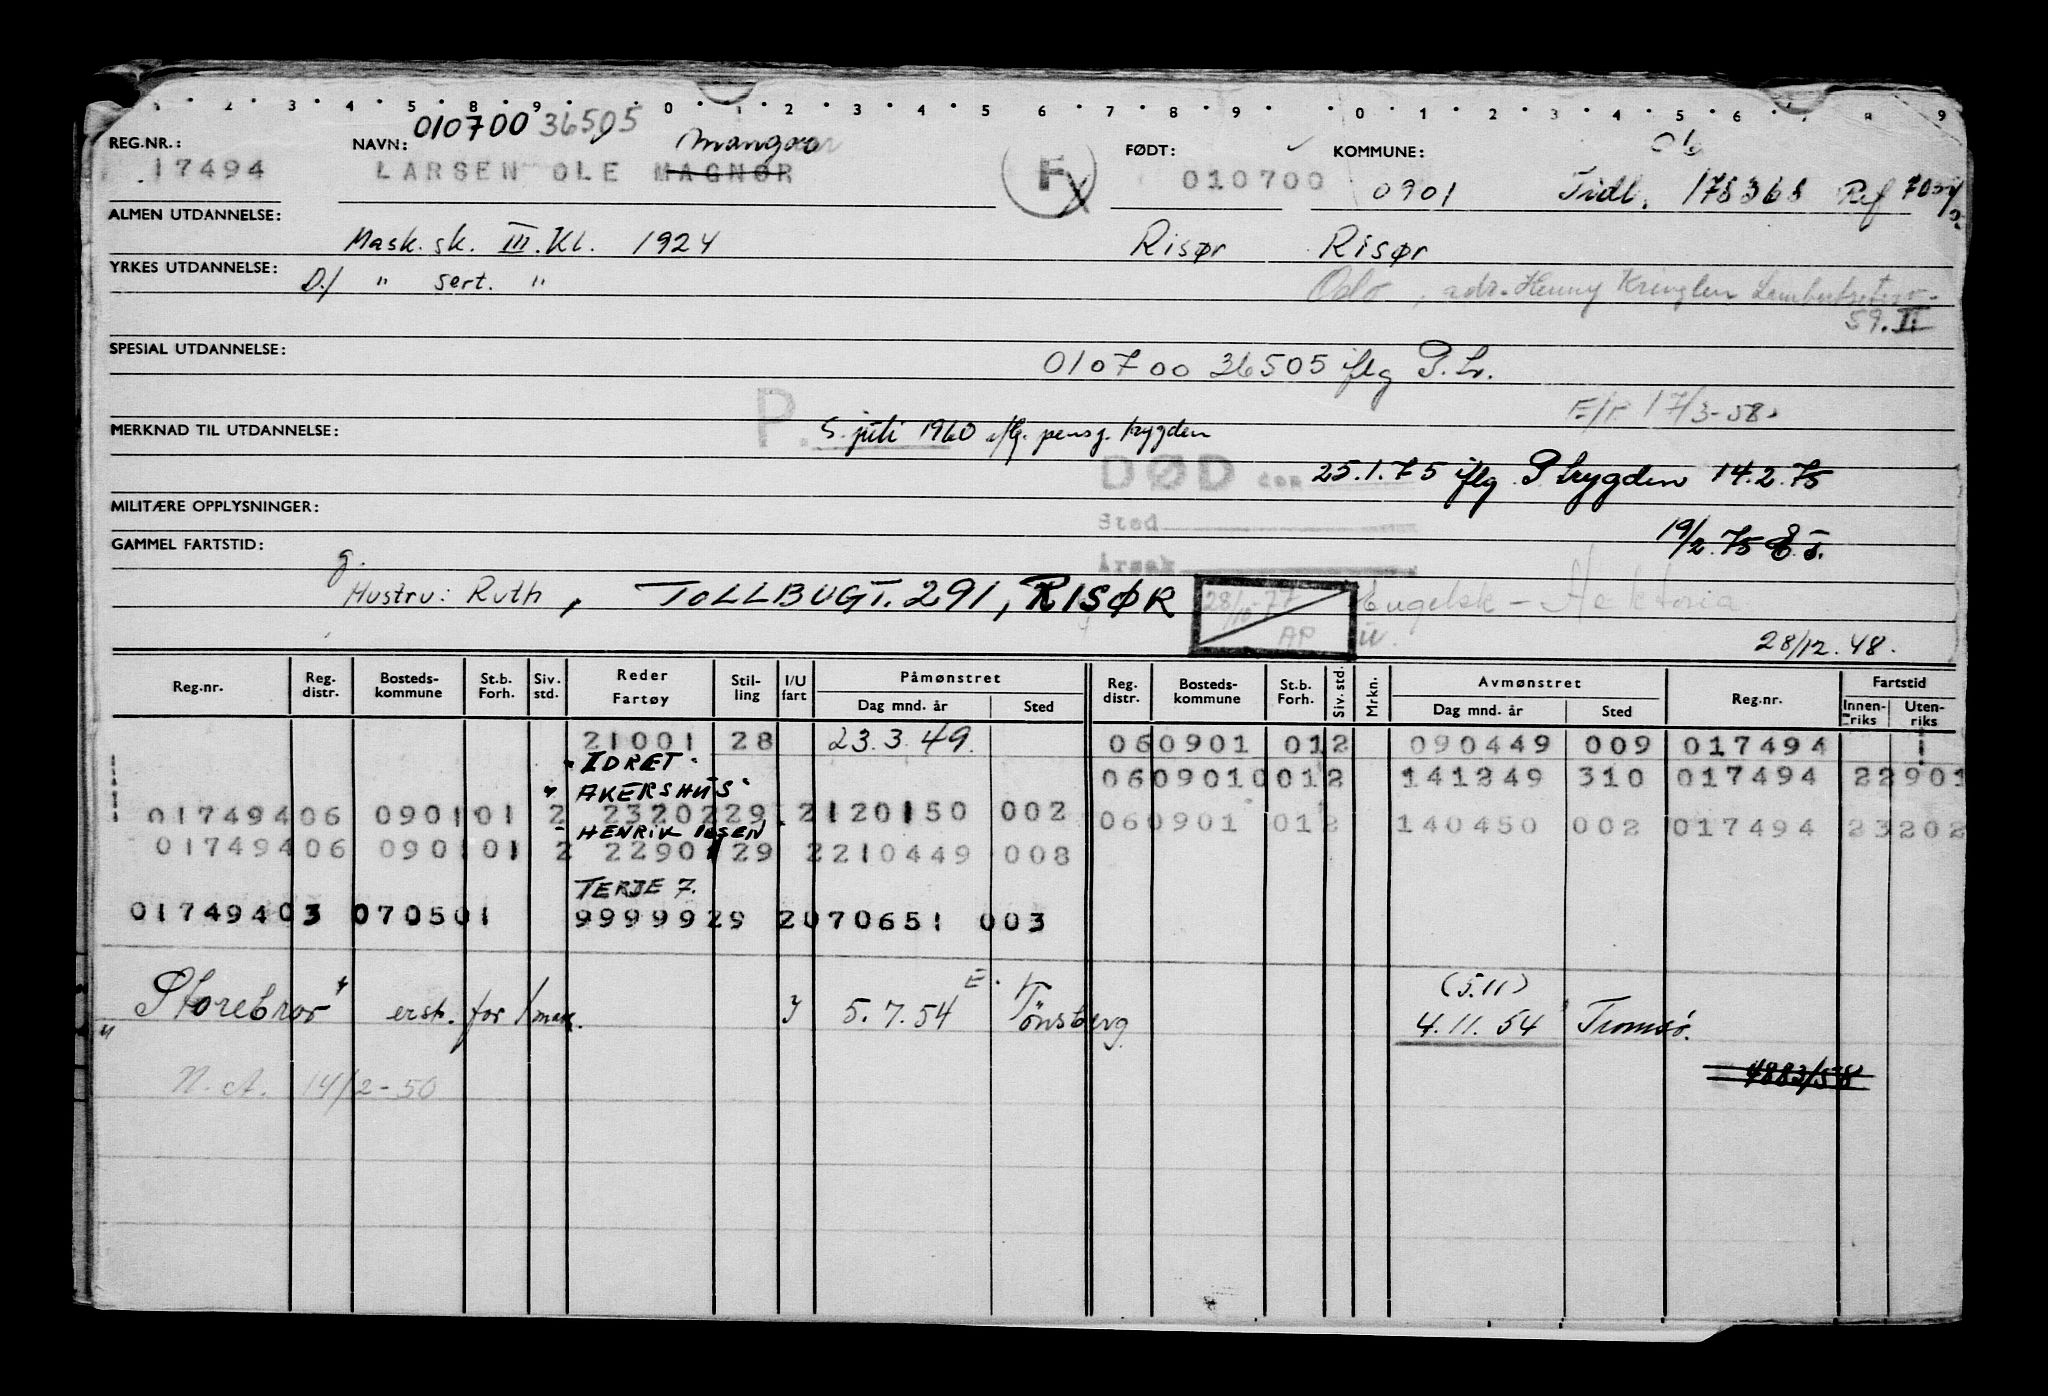 1 2 3 4 5 8 9 0 1 2 3 4 5 6 7 8 9 0 1 2 3 4 5 6 7 8 9
010700 36505 Mangor 06
REG.NR.: NAVN: FØDT: KOMMUNE:
17494 LARSEN OLE MAGNOR F 010700 0901 Tidl. 178368 Ref
ALMEN UTDANNELSE:
Mask. sk. III. Kl. 1924 Risør Risør
YRKES UTDANNELSE:
D/ " sert. " Oslo, adr. Henny Kringlen
59. II
SPESIAL UTDANNELSE:
010700 36505 iflg P.Tr.
E/F 17/3-58.
MERKNAD TIL UTDANNELSE: P. 5. juli 1960 iflg. pensj. trygden
DØD den 25.1.75 iflg P trygden 14.2.75
MILITÆRE OPPLYSNINGER: Sted
19/2.75
GAMMEL FARTSTID: Årsak
g.
Hustru: Ruth, TOLLBUGT. 291, RISØR 28/10-77 AP Engelsk - Hektoria
28/12.48.
Reg.nr. Reg. distr. Bosteds-kommune St.b. Forh. Siv. std. Reder Fartøy Stil-ling I/U fart Påmønstret Dag mnd. år Sted Reg. distr. Bosteds-kommune St.b. Forh. Siv. std. Mrkn. Avmønstret Dag mnd. år Sted Reg.nr. Fartstid Innen-riks Uten-riks
21001 28 23.3.49. 060901 012 090449 009 017494 1
"IDRET"
0609010012 141249 310 017494 22901
"AKERSHUS"
01749406 090101 2 2320229 2120150 002 060901 012 140450 002 017494 23202
"HENRIK IBSEN"
01749406 090101 2 22901 29 2210449 008
TERJE 7.
01749403 070501 9999929 2070651 003
"Storebror" erst. for 1 mask. 5.7.54 E. Tönsberg (5.11) 4.11.54 Tromsö.
N.A. 14/2-50 4883/58